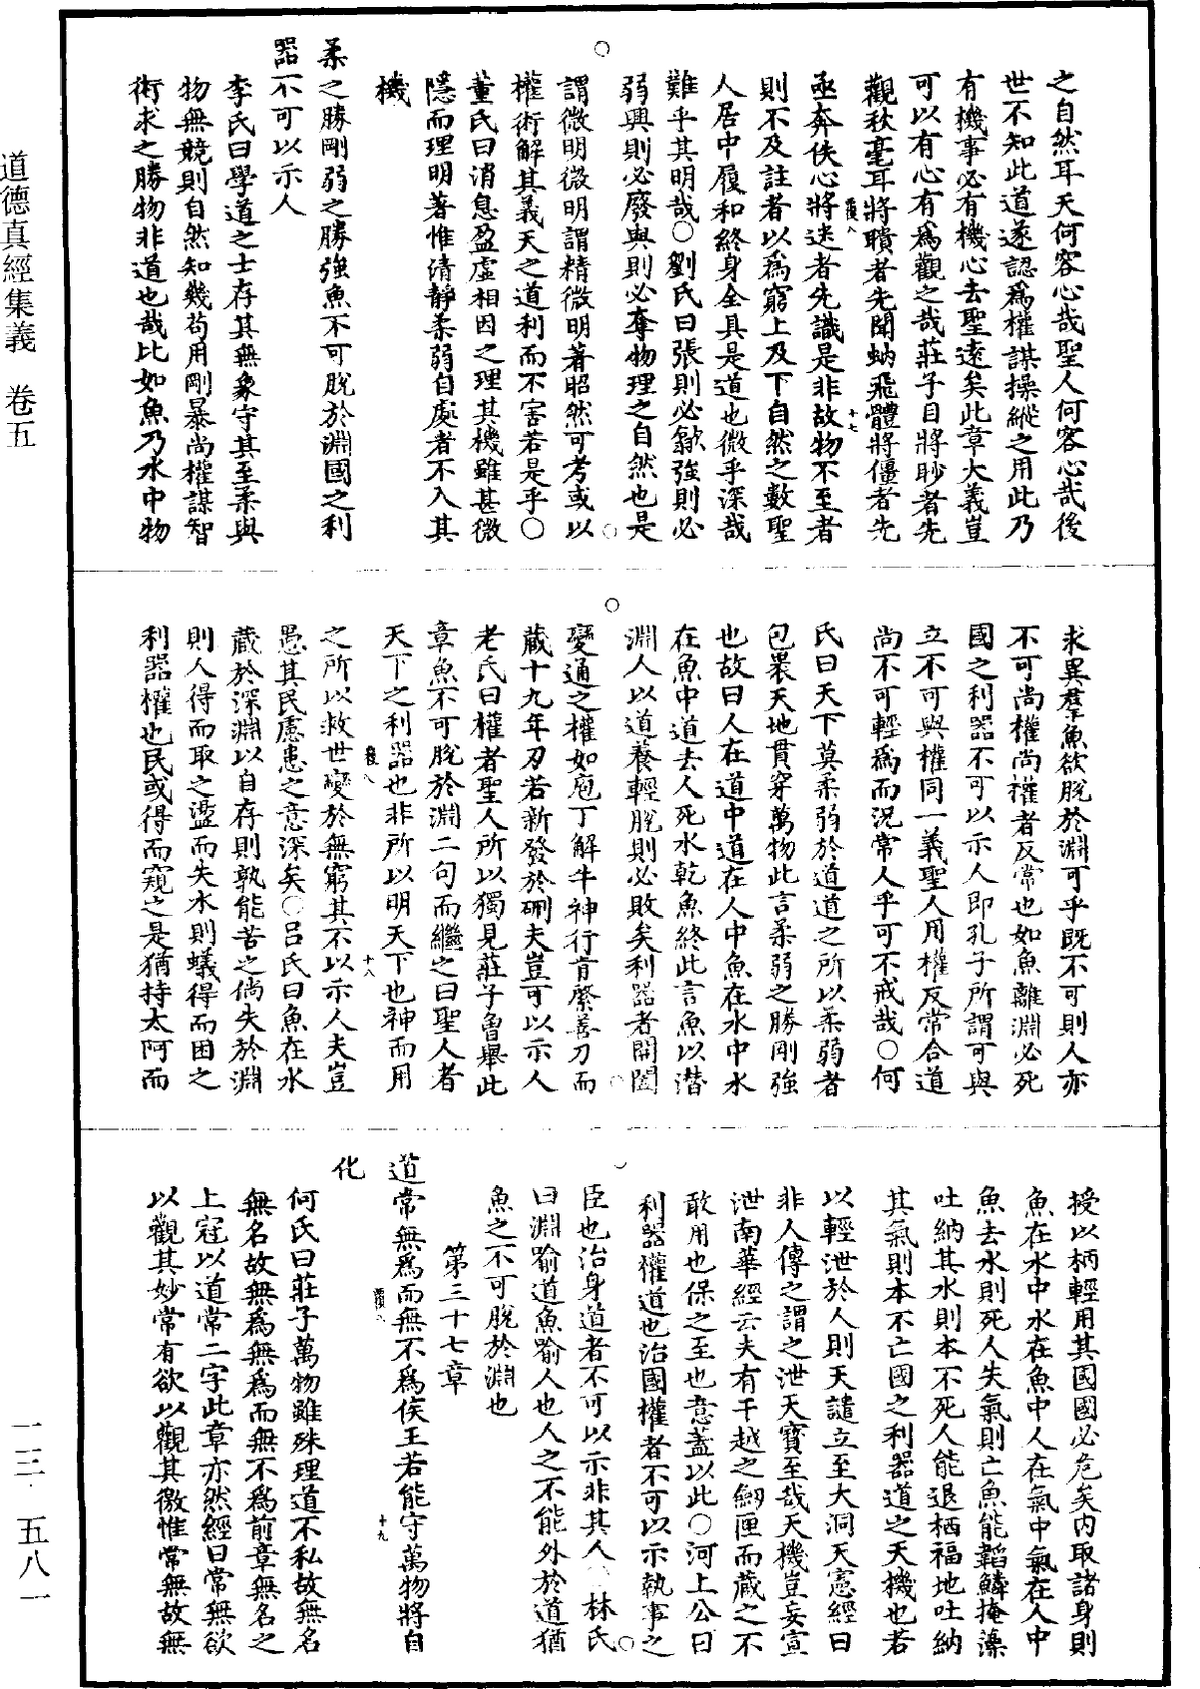 之自然耳天何容心哉聖人何容心哉後
世不知此道遂認爲權謀操縱之用此乃
有機事必有機心去聖遠矣此章大義豈
可以有心有爲觀之哉莊子目將眇者先
觀秋毫耳將聵者先聞蚋飛體將僵者先
亟奔佚心將迷者先識是非故物不至者
則不及註者以爲窮上及下自然之數聖
人居中履和終身全具是道也微乎深哉
難乎其明哉○劉氏曰張則必歙強則必
弱興則必廢與則必奪物理之自然也是
謂微明微明謂精微明著昭然可考或以
權術解其義天之道利而不害若是乎○
董氏曰消息盈虛相因之理其機雖甚微
隱而理明著惟清靜柔弱自處者不入其
機
柔之勝剛弱之勝強魚不可脫於淵國之利
器不可以示人
李氏曰學道之士存其無象守其至柔與
物無競則自然知幾苟用剛暴尚權謀智
術求之勝物非道也哉比如魚乃水中物
求異羣魚欲脫於淵可乎既不可則人亦
不可尚權尚權者反常也如魚離淵必死
國之利器不可以示人即孔子所謂可與
立不可與權同一義聖人用權反常合道
尚不可輕爲而況常人乎可不戒哉○何
氏曰天下莫柔弱於道道之所以柔弱者
包褁天地貫穿萬物此言柔弱之勝剛強
也故曰人在道中道在人中魚在水中水
在魚中道去人死水乾魚終此言魚以潜
淵人以道養輕脫則必敗矣利器者開闔
變通之權如庖丁解牛神行肯綮善刀而
藏十九年刃若新發於硎夫豈可以示人
老氏曰權者聖人所以獨見莊子魯舉此
章魚不可脫於淵二句而繼之曰聖人者
天下之利器也非所以明天下也神而用
之所以救世變於無窮其不以示人夫豈
愚其民慮患之意深矣○呂氏曰魚在水
藏於深淵以自存則孰能苦之倘失於淵
則人得而取之盪而失水則蟻得而困之
利器權也民或得而窺之是猶持太阿而
授以柄輕用其國國必危矣内取諸身則
魚在水中水在魚中人在氣中氣在人中
魚去水則死人失氣則亡魚能韜鱗掩藻
吐納其水則本不死人能退栖福地吐納
其氣則本不亡國之利器道之天機也若
以輕泄於人則天譴立至大洞天憲經曰
非人傳之謂之泄天寶至哉天機豈妄宣
泄南華經云夫有干越之劒匣而藏之不
敢用也保之至也意蓋以此○河上公曰
利器權道也治國權者不可以示執事之
臣也治身道者不可以示非其人○林氏
曰淵喻道魚喻人也人之不能外於道猶
魚之不可脫於淵也
第三十七章
道常無爲而無不爲侯王若能守萬物將自
化
何氏曰莊子萬物雖殊理道不私故無名
無名故無爲無爲而無不爲前章無名之
上冠以道常二字此章亦然經曰常無欲
以觀其妙常有欲以觀其徼惟常無故無
道德真經集義　卷五
一三·五八一
十七
十八
十九